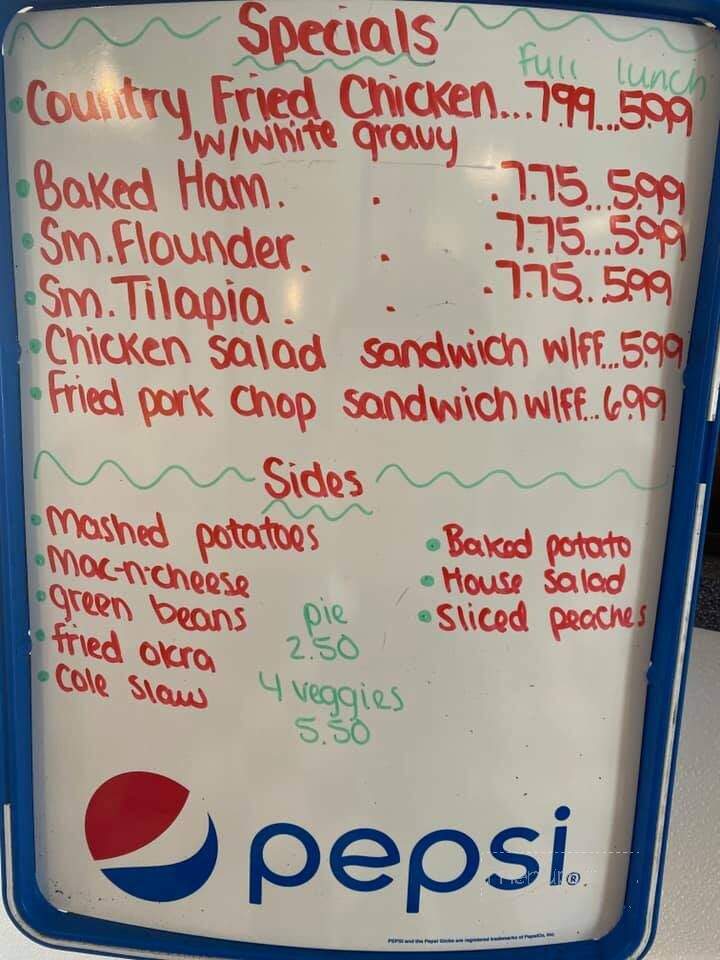 Specials
Full lunch
Country Fried Chicken...7.99...5.99
w/white gravy
Baked Ham. . .7.75...5.99
Sm. Flounder. . .7.75...5.99
Sm. Tilapia. . .7.75..5.99
Chicken salad sandwich w/FF...5.99
Fried pork chop sandwich w/FF..6.99
Sides
Mashed potatoes
Mac-n-cheese
green beans
fried okra
Cole slaw
pie
2.50
4 veggies
5.50
Baked potato
House salad
Sliced peaches
pepsi®
PEPSI and the Pepsi Globe are registered trademarks of PepsiCo, Inc.